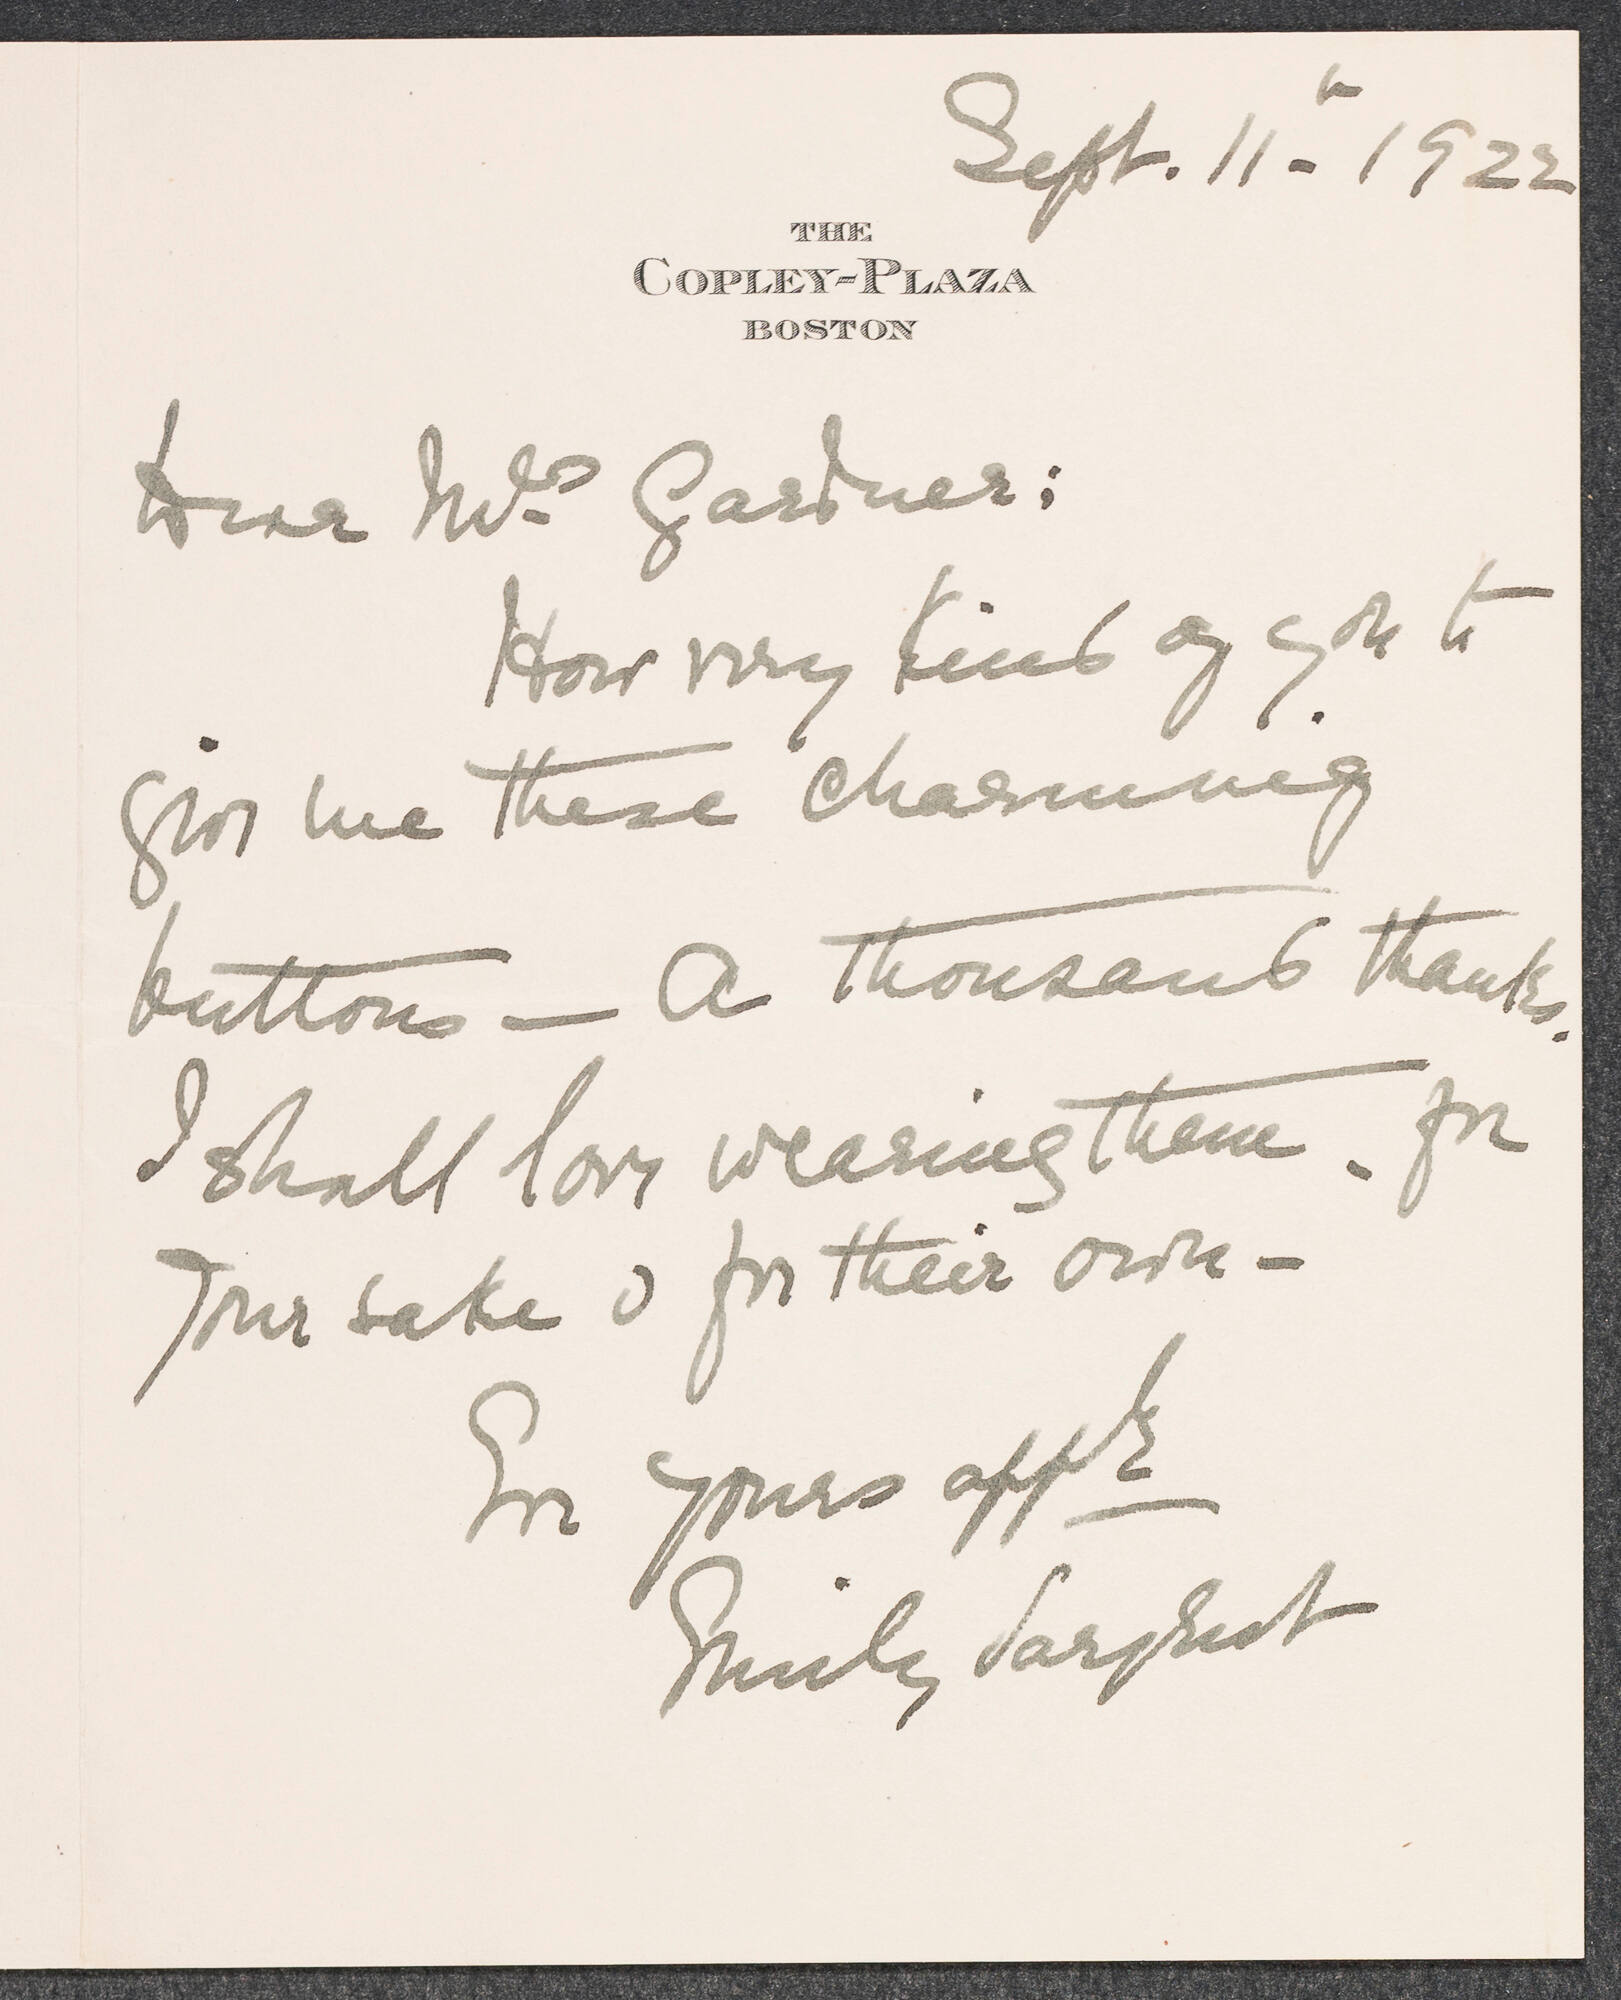 Sept. 11th 1922
THE
COPLEY-PLAZA
BOSTON
Dear Mrs. Gardner:
How very kind of you to
give me these charming
buttons — A thousand thanks.
I shall love wearing them. for
your sake & for their own —
Ever yours affly
Emily Sargent